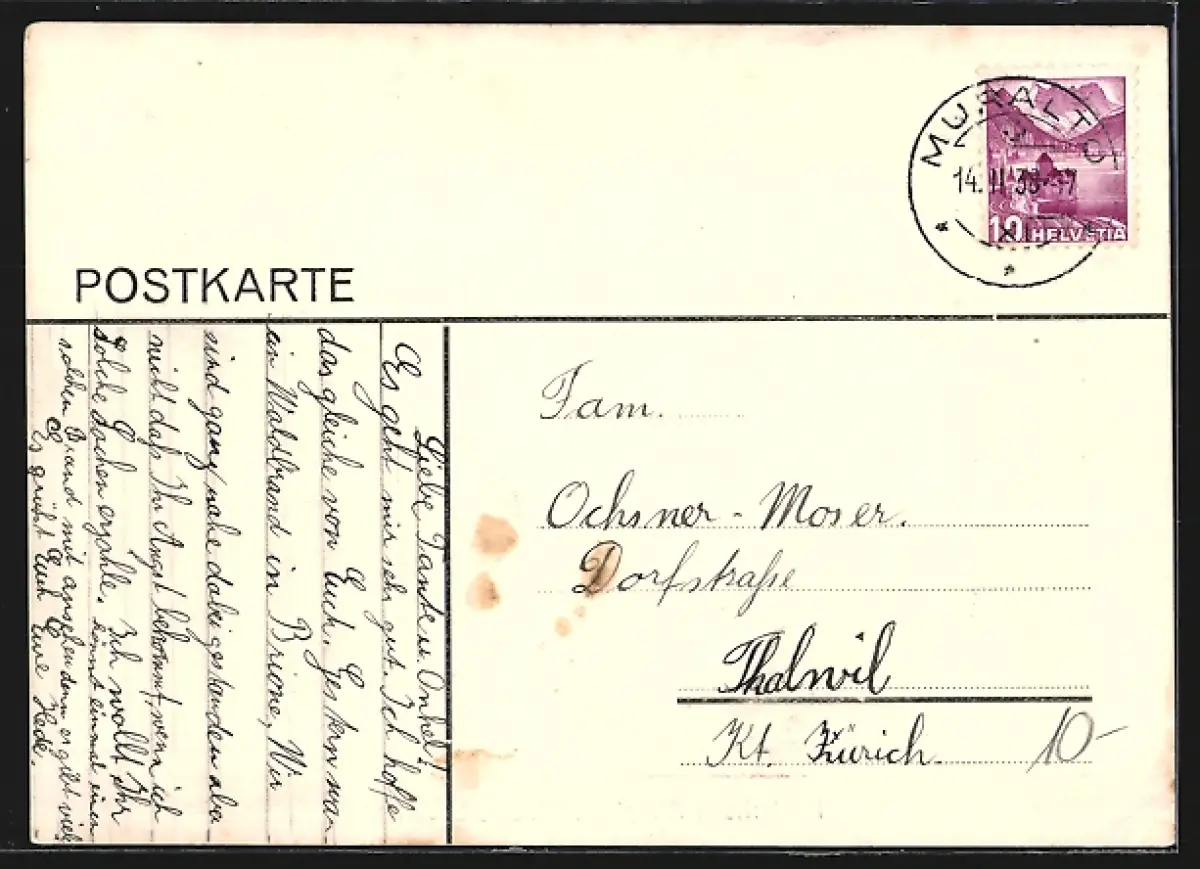 MURALTO
14.II.38-17
XI
10 HELVETIA
POSTKARTE
Fam.
Ochsner-Moser.
Dorfstraße
Thalwil
Kt. Zürich.
10-
Liebe Tante u. Onkel!
Es geht mir sehr gut. Ich hoffe
das gleiche von Euch. Gestern war
ein Waldbrand in Brione, Wir
sind ganz nahe dabei gestanden aba
nicht daß Ihr Angst bekommt, wenn ich
solche Sachen erzähle. Ich wollt Ihr
könnt einmal einen
solchen Brand mit ansehen denn es gibt viele
Es grüßt Euch Eure Hedi.